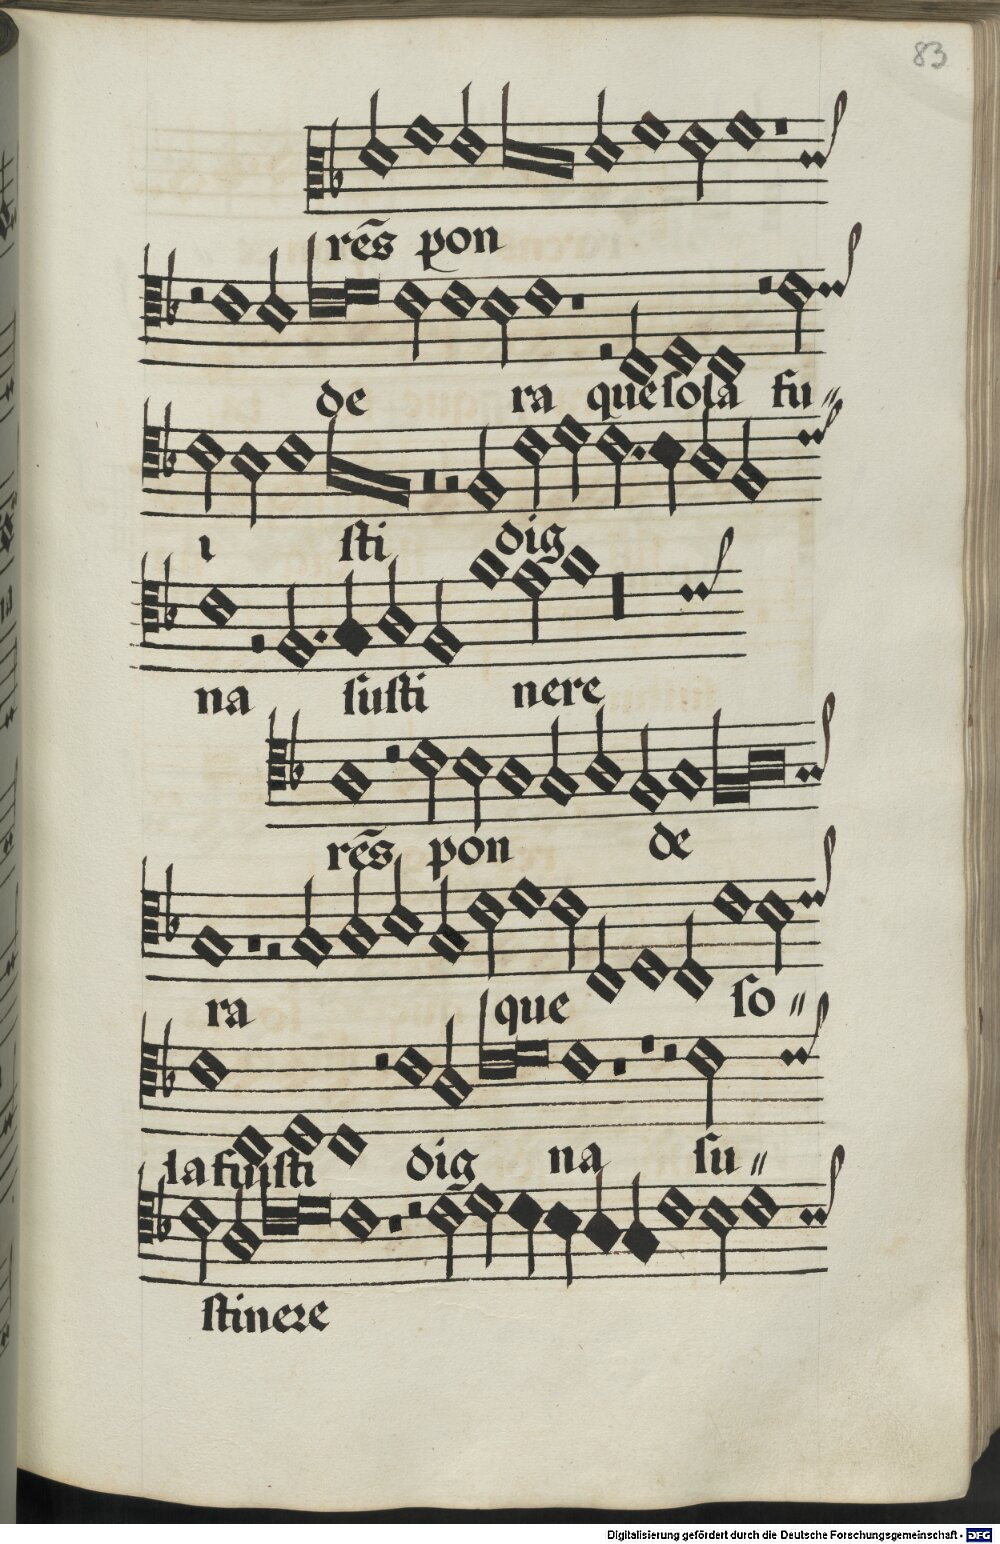 83
rēs pon
de ra que sola fu〃
i sti dig
na susti nere
rēs pon de
ra que so〃
la fuisti dig na su〃
stinere
Digitalisierung gefördert durch die Deutsche Forschungsgemeinschaft - DFG